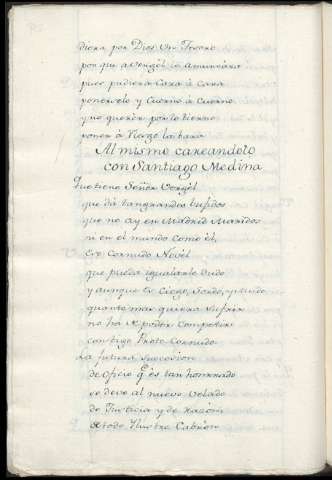 diera, por Dios Un Tesoro
porque a Vergèl lo anunciàra
pues pudiera Cara à Cara
ponerselo y Cuerno à Cuerno
y no querèr por lo tierno
ponèr à Riezgo la bara
Al mismo careandolo
con Santiago Medina
Que tiene Señòr Vergèl
que dà tan grandes bufidos
que no ay en Madrid Maridos
ni en el mundo como èl,
Cornudo Novèl
que pueda igualarle dudo
y aunque Ciego, Sordo, y Mudo
quanto mas quiera sufrir
no hà de podèr Competir
contigo Proto Cornudo
La futura succession
de Oficio q.e es tan honrrado
se deve al nuevo Velado
de Justicia y de razòn
à todo Ilustre Cabròn